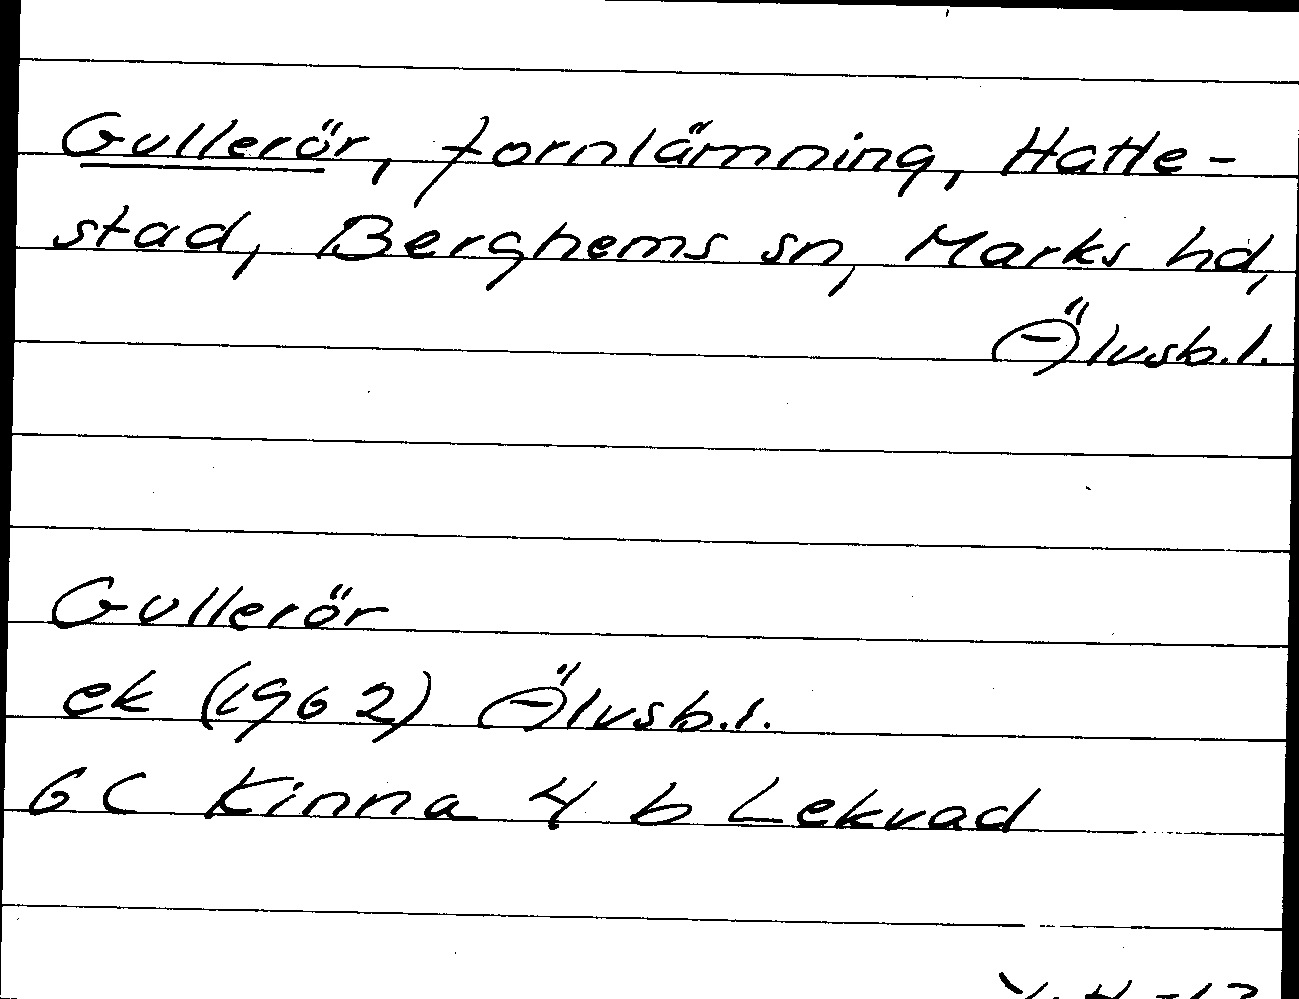 Gullerör, fornlämning, Hatle-
stad, Berghems sn, Marks hd,
Älvsb.l.
Gullerör
ek (1962) Älvsb.l.
6C Kinna 4 b Lekvad